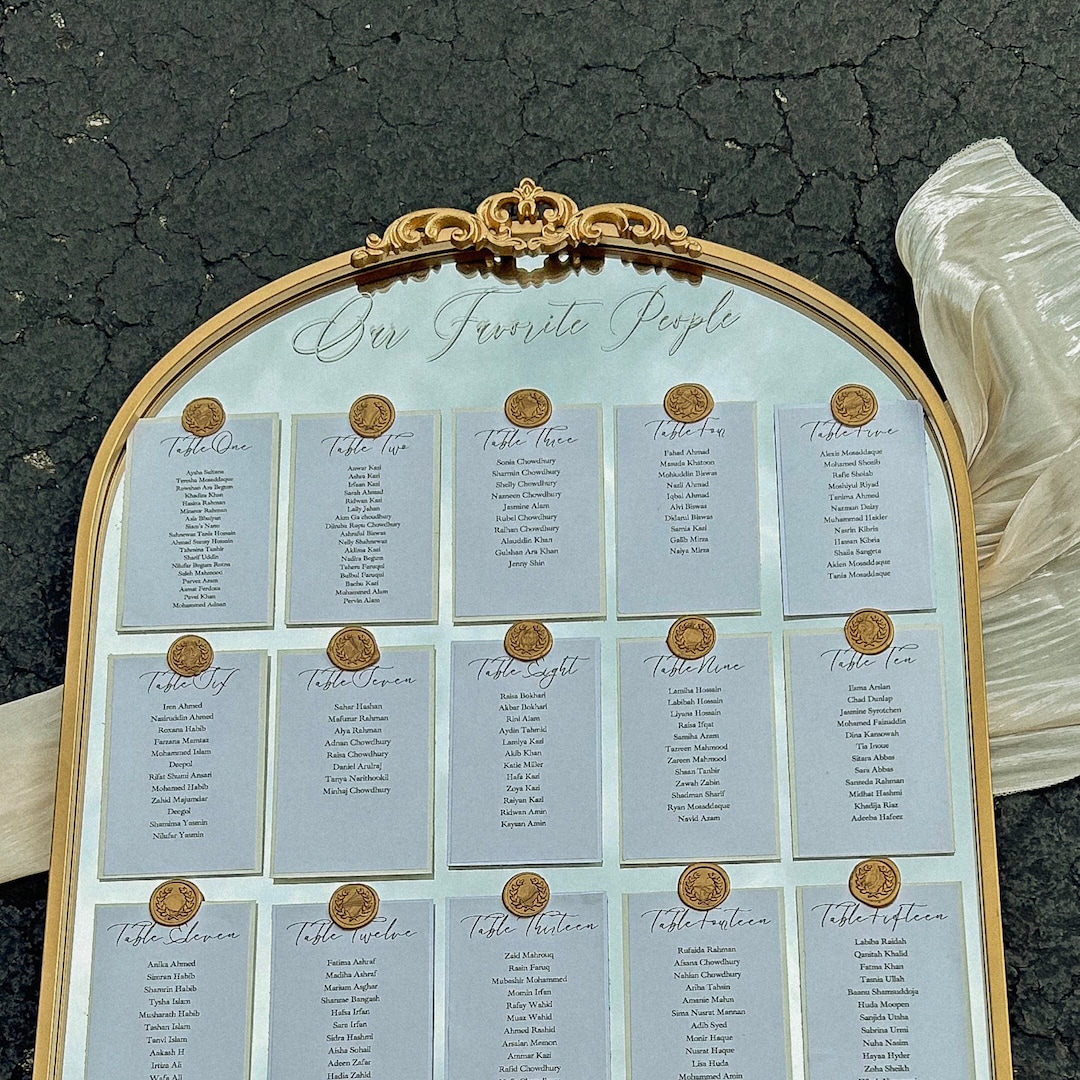 Our Favorite People
Table One
Aysha Sultana
Teresha Mosaddaque
Rowshan Ara Begum
Khadiza Khan
Hasina Rahman
Minaror Rahman
Asia Bhuiyan
Siam's Name
Sahnewaz Tania Hossain
Ahmad Sunny Hossain
Tahmina Tanbir
Sharif Uddin
Nilufar Begum Rotna
Saleh Mahmood
Parvez Azam
Asmat Ferdous
Pavel Khan
Mohammed Adnan
Table Two
Anwar Kazi
Ashra Kazi
Irfaan Kazi
Sarah Ahmad
Ridwan Kazi
Lally Jahan
Alam Ga choudhury
Dilruba Ropu Chowdhury
Ashraful Biswas
Nelly Shahnewaz
Aklima Kazi
Nadira Begum
Tahera Faruqui
Bulbul Faruqui
Bachu Kazi
Mohammed Alam
Pervin Alam
Table Three
Sonia Chowdhury
Sharmin Chowdhury
Shelly Chowdhury
Nazneen Chowdhury
Jasmine Alam
Rubel Chowdhury
Raihan Chowdhury
Alauddin Khan
Gulshan Ara Khan
Jenny Shin
Table Four
Fahad Ahmad
Masuda Khatoon
Mohiuddin Biswas
Nazli Ahmad
Iqbal Ahmad
Alvi Biswas
Didarul Biswas
Samia Kazi
Galib Mirza
Naiya Mirza
Table Five
Alexis Mosaddaque
Mohamed Shoaib
Rafie Shoiab
Moshiyul Riyad
Tanima Ahmed
Nazmun Daisy
Muhammad Haider
Nasrin Kibria
Hassan Kibria
Shaila Sangeta
Akien Mosaddaque
Tania Mosaddaque
Table Six
Iren Ahmed
Nasiruddin Ahmed
Roxana Habib
Farzana Mamtaz
Mohammed Islam
Deepol
Rifat Shumi Ansari
Mohamed Habib
Zahid Majumdar
Deegol
Shamima Yasmin
Nilufar Yasmin
Table Seven
Sahar Hashan
Mafuzur Rahman
Alya Rahman
Adnan Chowdhury
Raisa Chowdhury
Daniel Arulraj
Tanya Narithookil
Minhaj Chowdhury
Table Eight
Raisa Bokhari
Akbar Bokhari
Rini Alam
Aydin Tahmid
Lamiya Kazi
Akib Khan
Katie Miller
Hafa Kazi
Zoya Kazi
Raiyan Kazi
Ridwan Amin
Kaysan Amin
Table Nine
Lamiha Hossain
Labibah Hossain
Liyana Hossain
Raisa Ifqat
Samiha Azam
Tazreen Mahmood
Zareen Mahmood
Shaan Tanbir
Zawah Zabin
Shadman Sharif
Ryan Mosaddaque
Navid Azam
Table Ten
Esma Arslan
Chad Dunlap
Jasmine Syrotchen
Mohamed Faizuddin
Dina Kansowah
Tia Inoue
Sitara Abbas
Sara Abbas
Saneeda Rahman
Midhat Hashmi
Khadija Riaz
Adeeba Hafeez
Table Eleven
Anika Ahmed
Simran Habib
Shamrin Habib
Tysha Islam
Musharath Habib
Tashan Islam
Tanvi Islam
Aakash H
Irtiza Ali
Wafa Ali
Table Twelve
Fatima Ashraf
Madiha Ashraf
Marium Asghar
Shanzae Bangash
Hafsa Irfan
Sara Irfan
Sidra Hashmi
Aisha Sohail
Adeen Zafar
Hadia Zahid
Table Thirteen
Zaid Mahrouq
Rasin Faruq
Mubashir Mohammed
Momin Irfan
Rafay Wahid
Muaz Wahid
Ahmed Rashid
Arsalan Memon
Ammar Kazi
Rafid Chowdhury
Table Fourteen
Rufaida Rahman
Afsana Chowdhury
Nahiun Chowdhury
Ariha Tahsin
Amanie Mahn
Sima Nusrat Mannan
Adib Syed
Monir Haque
Nusrat Haque
Lisa Huda
Mohammed Amin
Table Fifteen
Labiba Raidah
Qanitah Khalid
Fatma Khan
Tasnia Ullah
Baanu Shamsuddoja
Huda Moopen
Sanjida Utsha
Sabrina Urmi
Nuha Nasim
Hayaa Hyder
Zoha Sheikh